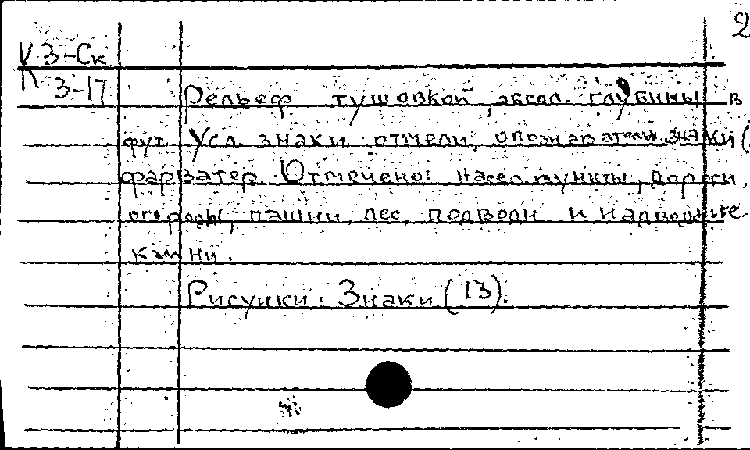 2
К 3-Ск
3-17
Рельеф тушовкой, абсол. глубины в
фут. Усл. знаки отмели, опознават. знаки (
фарватер. Отмечено: насел. пункты, дороги,
огороды, пашни, лес, подводн и надводные
камни.
Рисунки: Знаки (13).